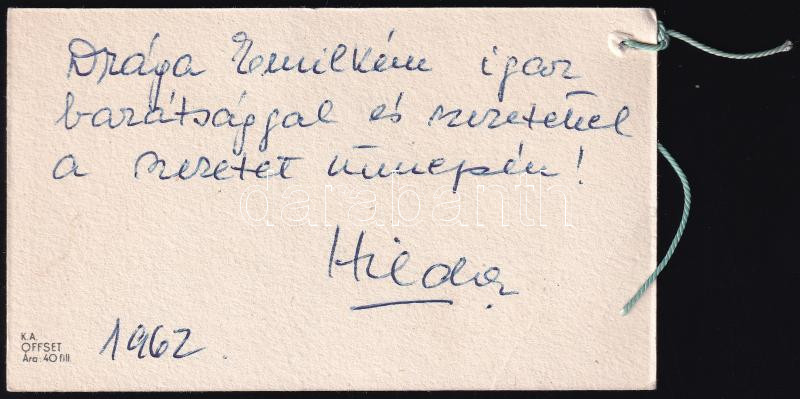 Drága Emilkém igaz
barátsággal és szeretettel
a szeretet ünnepén!
Hilda
1962.
K.A.
OFFSET
Ára: 40 fill.
darabanth